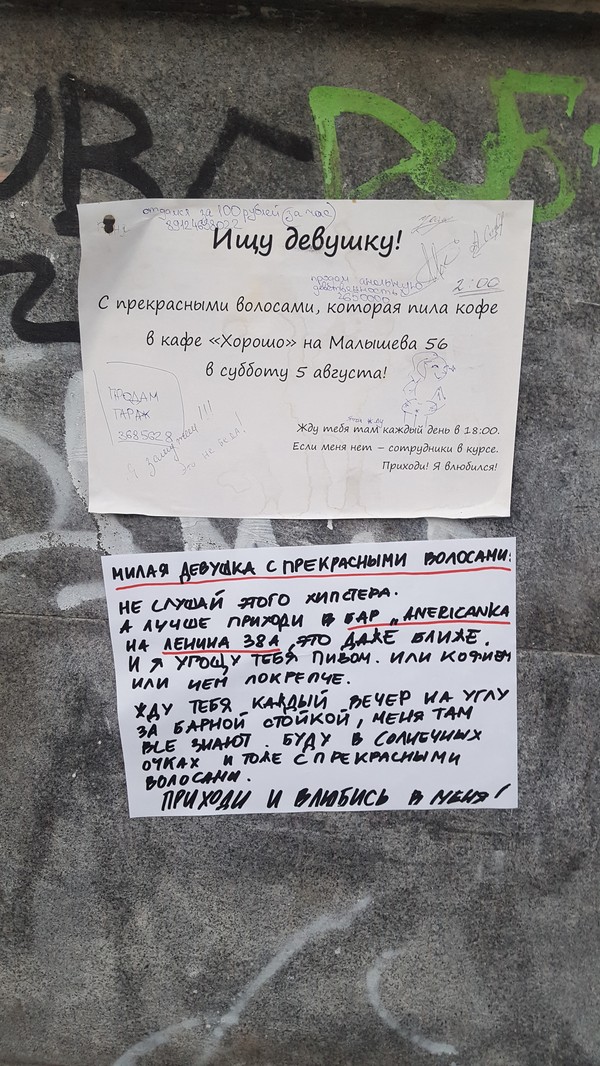 отдамся за 100 рублей (за час)
89124658022
Ищу девушку!
продам анальную
девственность
2:00
С прекрасными волосами, которая пила кофе
в кафе «Хорошо» на Малышева 56
в субботу 5 августа!
ПРОДАМ
ГАРАЖ
3685628
Я замужем!!!
Это не беда!
Жду тебя там каждый день в 18:00.
Если меня нет – сотрудники в курсе.
Приходи! Я влюбился!
МИЛАЯ ДЕВУШКА С ПРЕКРАСНЫМИ ВОЛОСАМИ:
НЕ СЛУШАЙ ЭТОГО ХИПСТЕРА.
А ЛУЧШЕ ПРИХОДИ В БАР „AMERICANKA
НА ЛЕНИНА 38А, ЭТО ДАЖЕ БЛИЖЕ.
И Я УГОЩУ ТЕБЯ ПИВОМ. ИЛИ КОФИЕМ
ИЛИ ЧЕМ ПОКРЕПЧЕ.
ЖДУ ТЕБЯ КАЖДЫЙ ВЕЧЕР НА УГЛУ
ЗА БАРНОЙ СТОЙКОЙ, МЕНЯ ТАМ
ВСЕ ЗНАЮТ. БУДУ В СОЛНЕЧНЫХ
ОЧКАХ И ТОЖЕ С ПРЕКРАСНЫМИ
ВОЛОСАМИ.
ПРИХОДИ И ВЛЮБИСЬ В МЕНЯ!